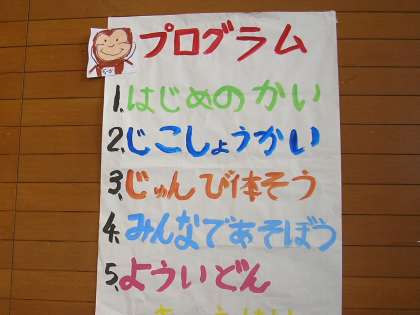 プログラム
1.はじめのかい
2.じこしょうかい
3.じゅんび体そう
4.みんなであそぼう
5.よういどん